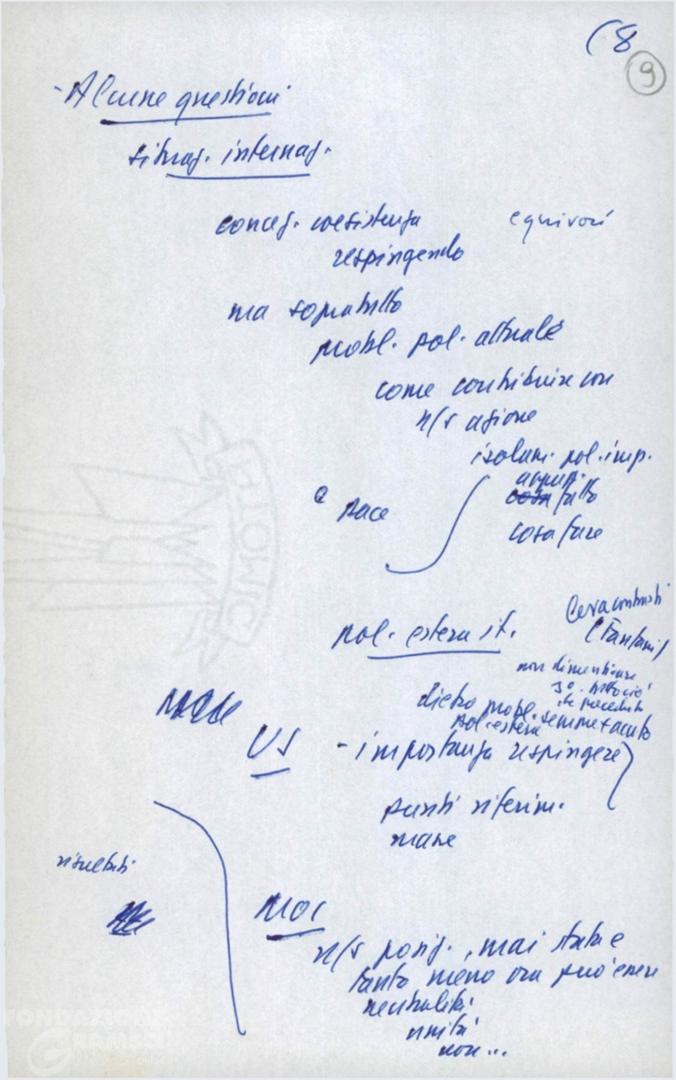 (8
9
- Alcune questioni
situaz. internaz.
concez. coesistenza equivoci
respingendo
ma soprattutto
probl. pol. attuale
come contribuire con
n/s azione
isolam. pol. imp.
fatto
e pace
cosa fare
pol. estera it.
(Fanfani)
non dimenticare
dietro probl.
pol. estera
US - importanza respingere
punti riferim.
risultati
MOC
n/s posiz., mai stata e
tanto meno ora può essere
neutralità
unità
non...
FONDAZIONE
GRAMSCI